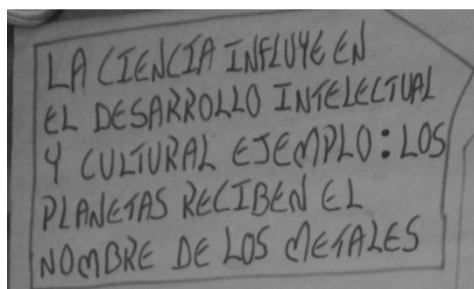 LA CIENCIA INFLUYE EN
EL DESARROLLO INTELECTUAL
Y CULTURAL EJEMPLO: LOS
PLANETAS RECIBEN EL
NOMBRE DE LOS METALES